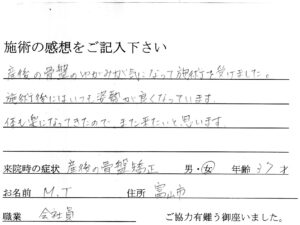 施術の感想をご記入下さい
産後の骨盤のゆがみが気になって施術を受けました。
施術後にはいつも姿勢が良くなっています。
体も楽になってきたので、また来たいと思います。
来院時の症状 産後の骨盤矯正 男・女 年齢 37才
お名前 M.T 住所 富山市
職業 会社員 ご協力有難う御座いました。